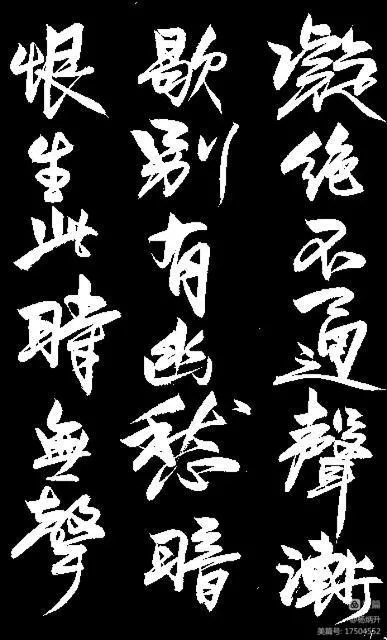 凝绝不通聲漸
歇别有幽愁暗
恨生此時無聲
美篇
@杨炳升
美篇号: 17504552